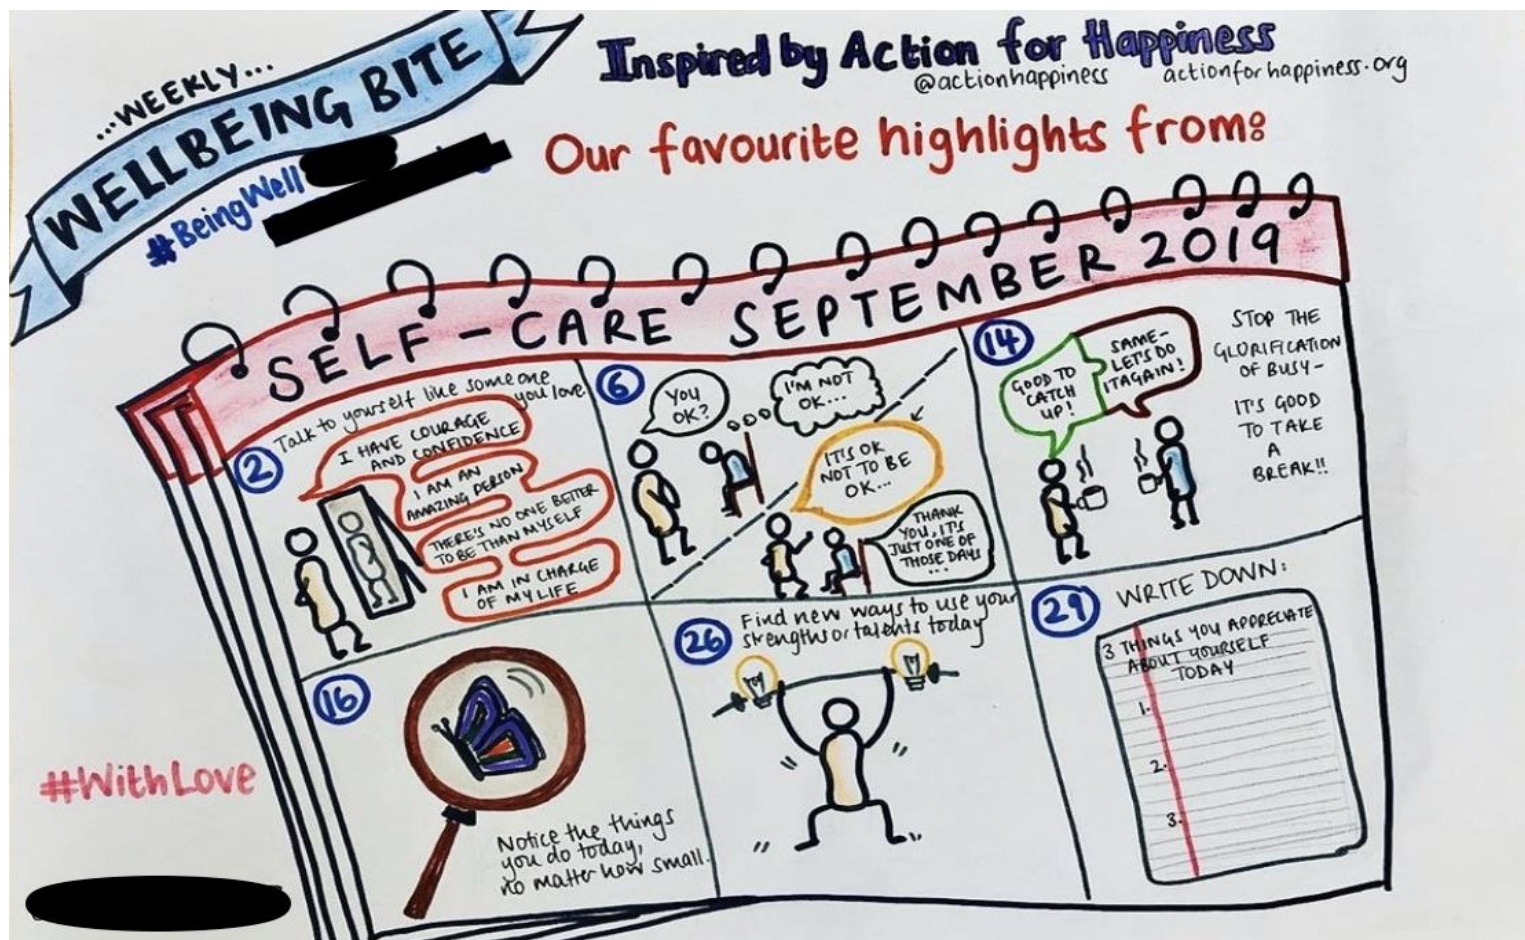 ...WEEKLY...
WELLBEING BITE
#BeingWell
Inspired by Action for Happiness
@actionhappiness actionforhappiness.org
Our favourite highlights from:
SELF-CARE SEPTEMBER 2019
2
Talk to yourself like someone
you love.
I HAVE COURAGE
AND CONFIDENCE
I AM AN
AMAZING PERSON
THERE'S NO ONE BETTER
TO BE THAN MYSELF
I AM IN CHARGE
OF MY LIFE
6
YOU
OK?
I'M NOT
OK...
IT'S OK
NOT TO BE
OK...
THANK
YOU, IT'S
JUST ONE OF
THOSE DAYS
...
14
GOOD TO
CATCH
UP!
SAME-
LET'S DO
IT AGAIN!
STOP THE
GLORIFICATION
OF BUSY-
IT'S GOOD
TO TAKE
A
BREAK!!
16
Notice the things
you do today,
no matter how small.
26
Find new ways to use your
strengths or talents today
29
WRITE DOWN:
3 THINGS YOU APPRECIATE
ABOUT YOURSELF
TODAY
1.
2.
3.
#WithLove